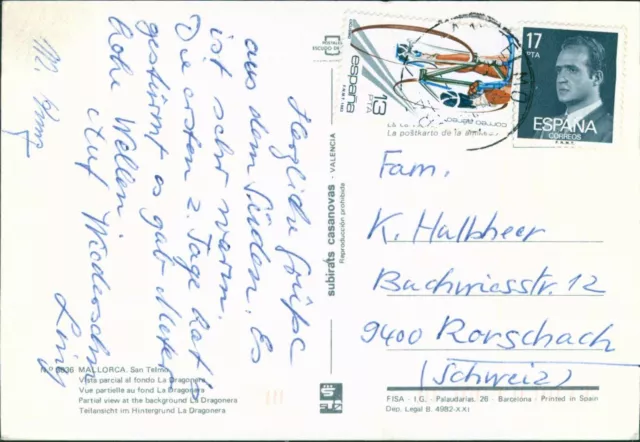 Herzliche Grüsse
aus dem Süden. Es
ist sehr warm.
Die ersten 2. Tage hat's
gestürmt es gab Meter
hohe Wellen.
Auf Wiedersehn
Fam.
K. Halbheer
Buchwiesstr. 12
9400 Rorschach
(Schweiz)
17
PTA
ESPAÑA
CORREOS
F.N.M.T.
13
PTA
españa
CORREO AEREO
La postkarto de la
subirats casanovas - VALENCIA
Reproducción prohibida
N.º 9036 MALLORCA. San Telmo
Vista parcial al fondo La Dragonera
Vue partielle au fond La Dragonera
Partial view at the background La Dragonera
Teilansicht im Hintergrund La Dragonera
FISA - I.G. - Palaudarias, 26 - Barcelona - Printed in Spain
Dep. Legal B. 4982-XXI